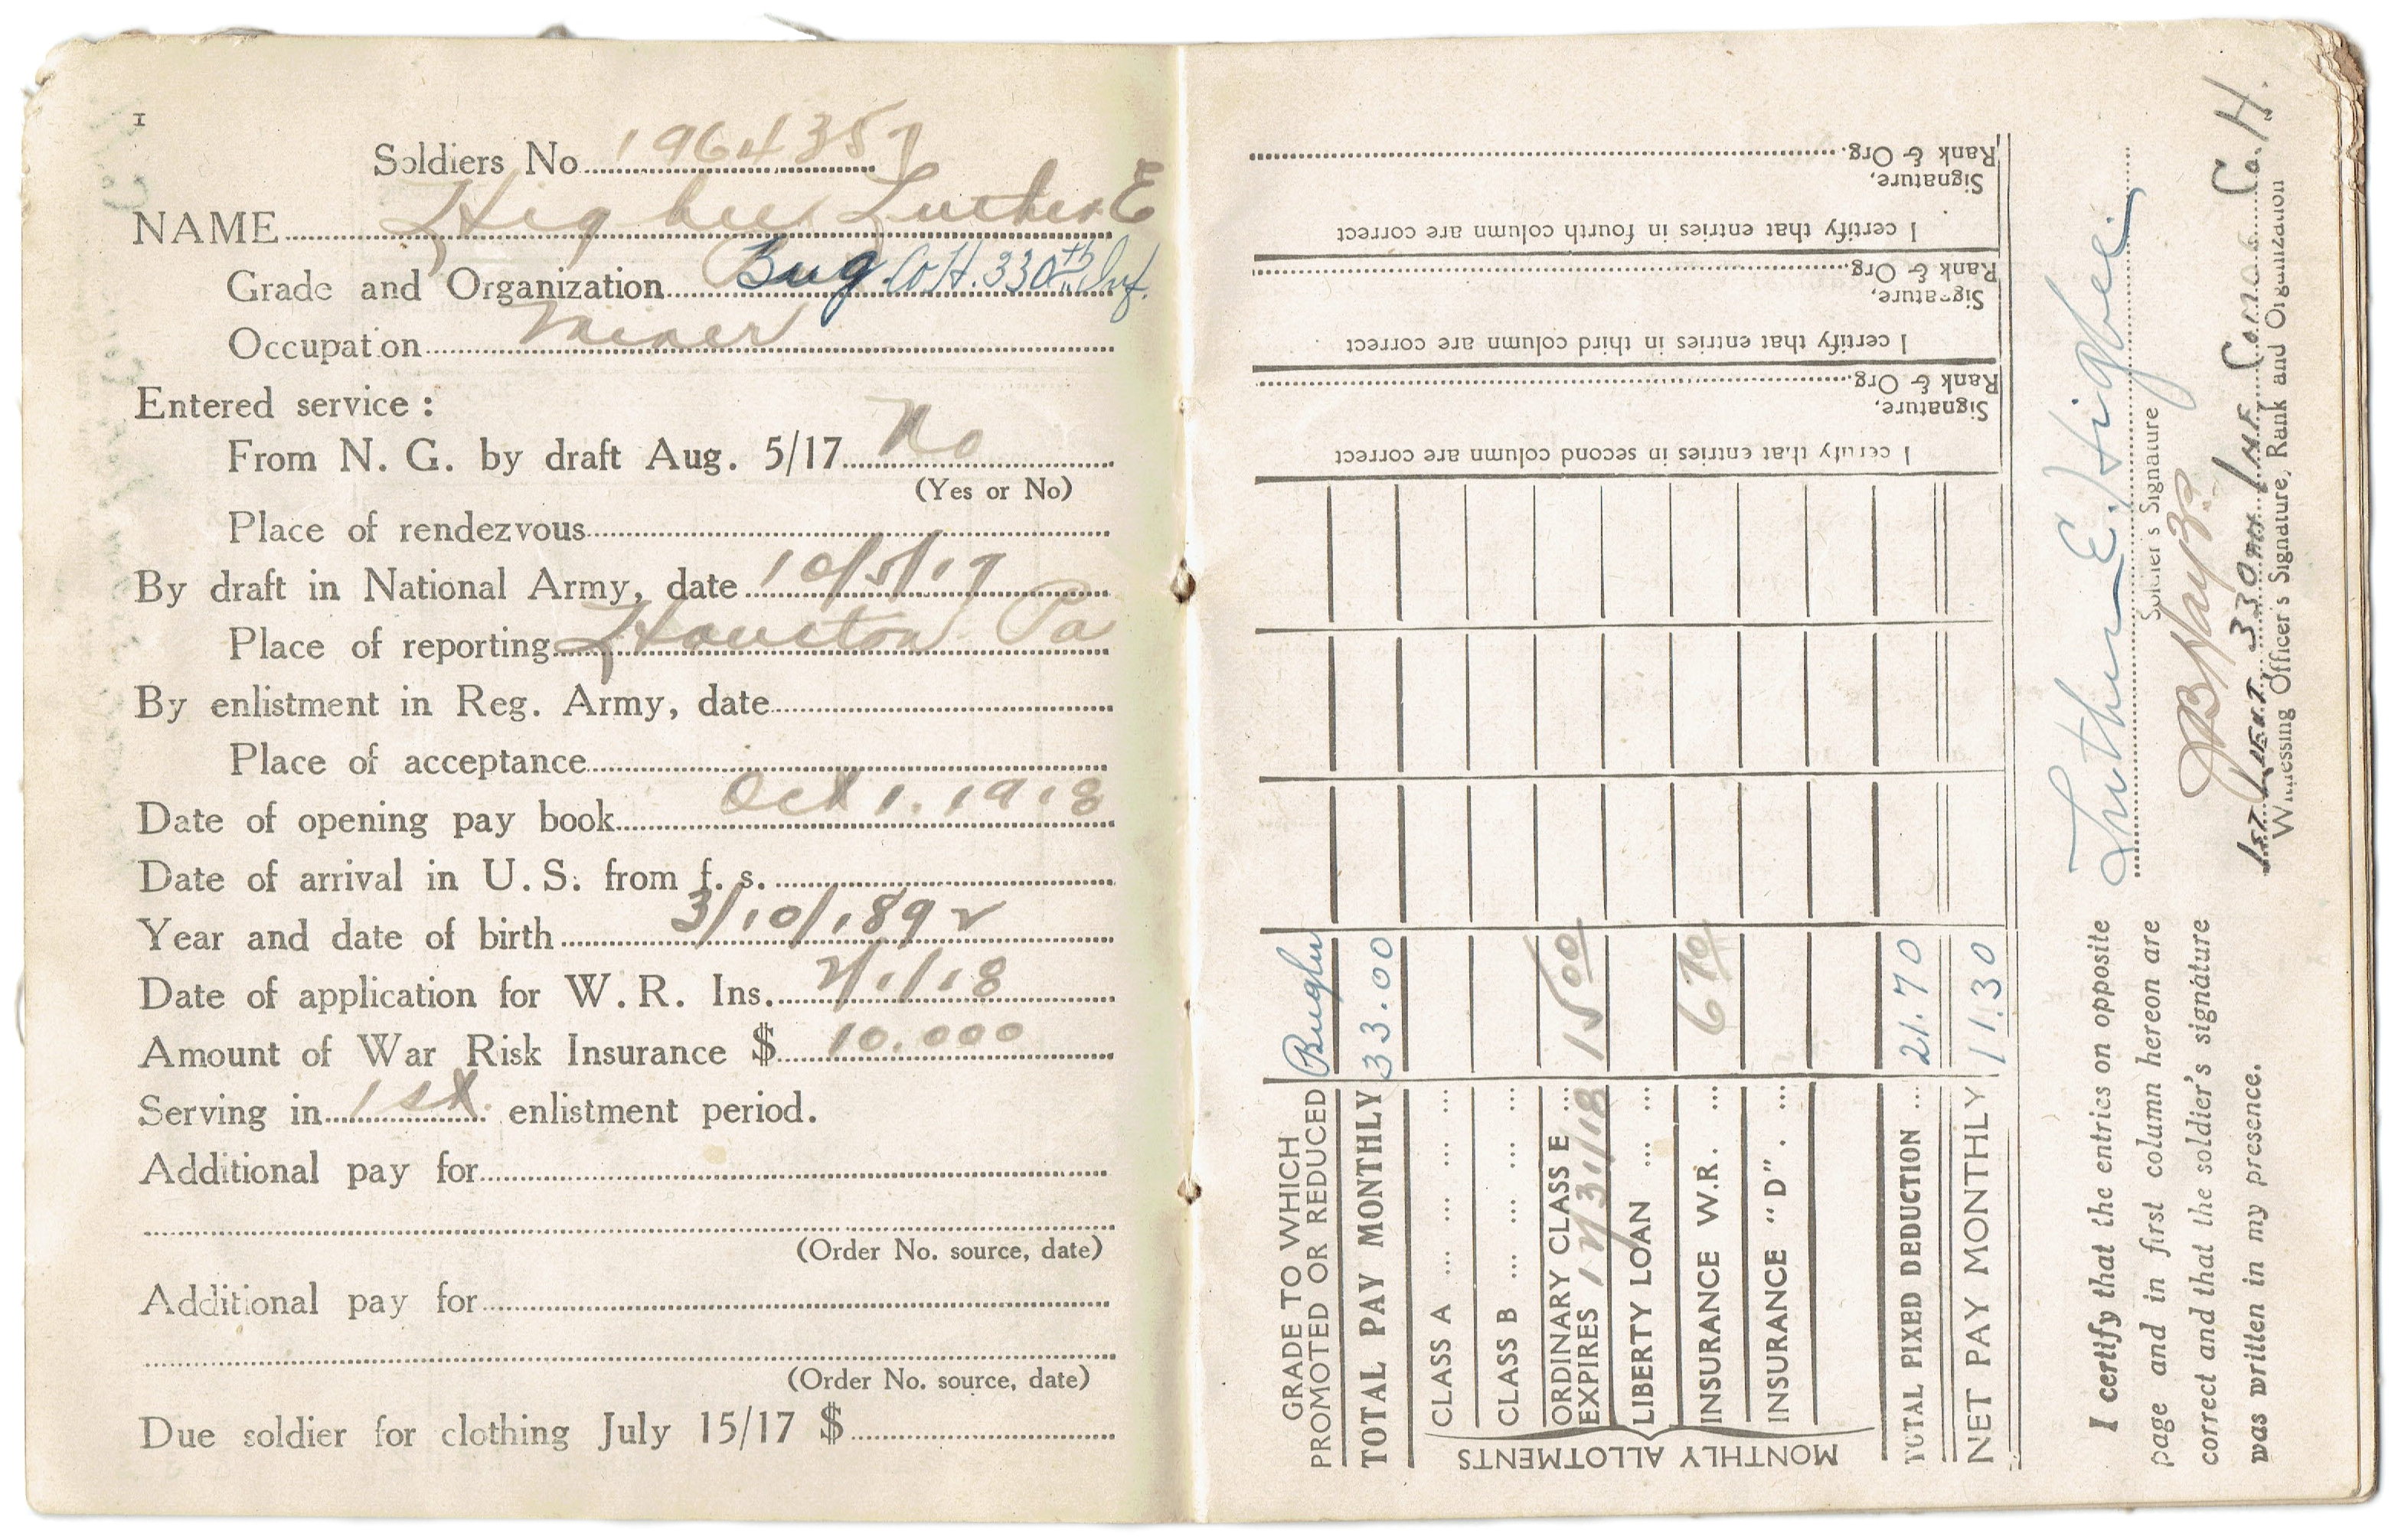 1
Soldiers No. 1964357
NAME Higbee, Luther E
Grade and Organization Bug Co H. 330th Inf.
Occupation Miner
Entered service :
From N. G. by draft Aug. 5/17 No
(Yes or No)
Place of rendezvous
By draft in National Army, date 10/5/17
Place of reporting Houston Pa
By enlistment in Reg. Army, date
Place of acceptance
Date of opening pay book Oct 1. 1918
Date of arrival in U.S. from f. s.
Year and date of birth 3/10/1892
Date of application for W.R. Ins. 2/1/18
Amount of War Risk Insurance $ 10.000
Serving in 1st enlistment period.
Additional pay for
(Order No. source, date)
Additional pay for
(Order No. source, date)
Due soldier for clothing July 15/17 $
GRADE TO WHICH PROMOTED OR REDUCED Bugler
TOTAL PAY MONTHLY 33.00
MONTHLY ALLOTMENTS
CLASS A ... ... ...
CLASS B ... ... ...
ORDINARY CLASS E ... 15 00
EXPIRES 12/31/18
LIBERTY LOAN ... ...
INSURANCE W.R. ... 6 70
INSURANCE "D" . ...
TOTAL PIXED DEDUCTION ... 21.70
NET PAY MONTHLY 11.30
I certify that entries in second column are correct
Signature,
Rank & Org.
I certify that entries in third column are correct
Signature,
Rank & Org.
I certify that entries in fourth column are correct
Signature,
Rank & Org.
I certify that the entries on opposite
page and in first column hereon are
correct and that the soldier's signature
was written in my presence.
Luther E. Higbee
Soldier's Signature
1st Lieut 330th Inf. Comd'g Co. H.
Witnessing Officer's Signature, Rank and Organization